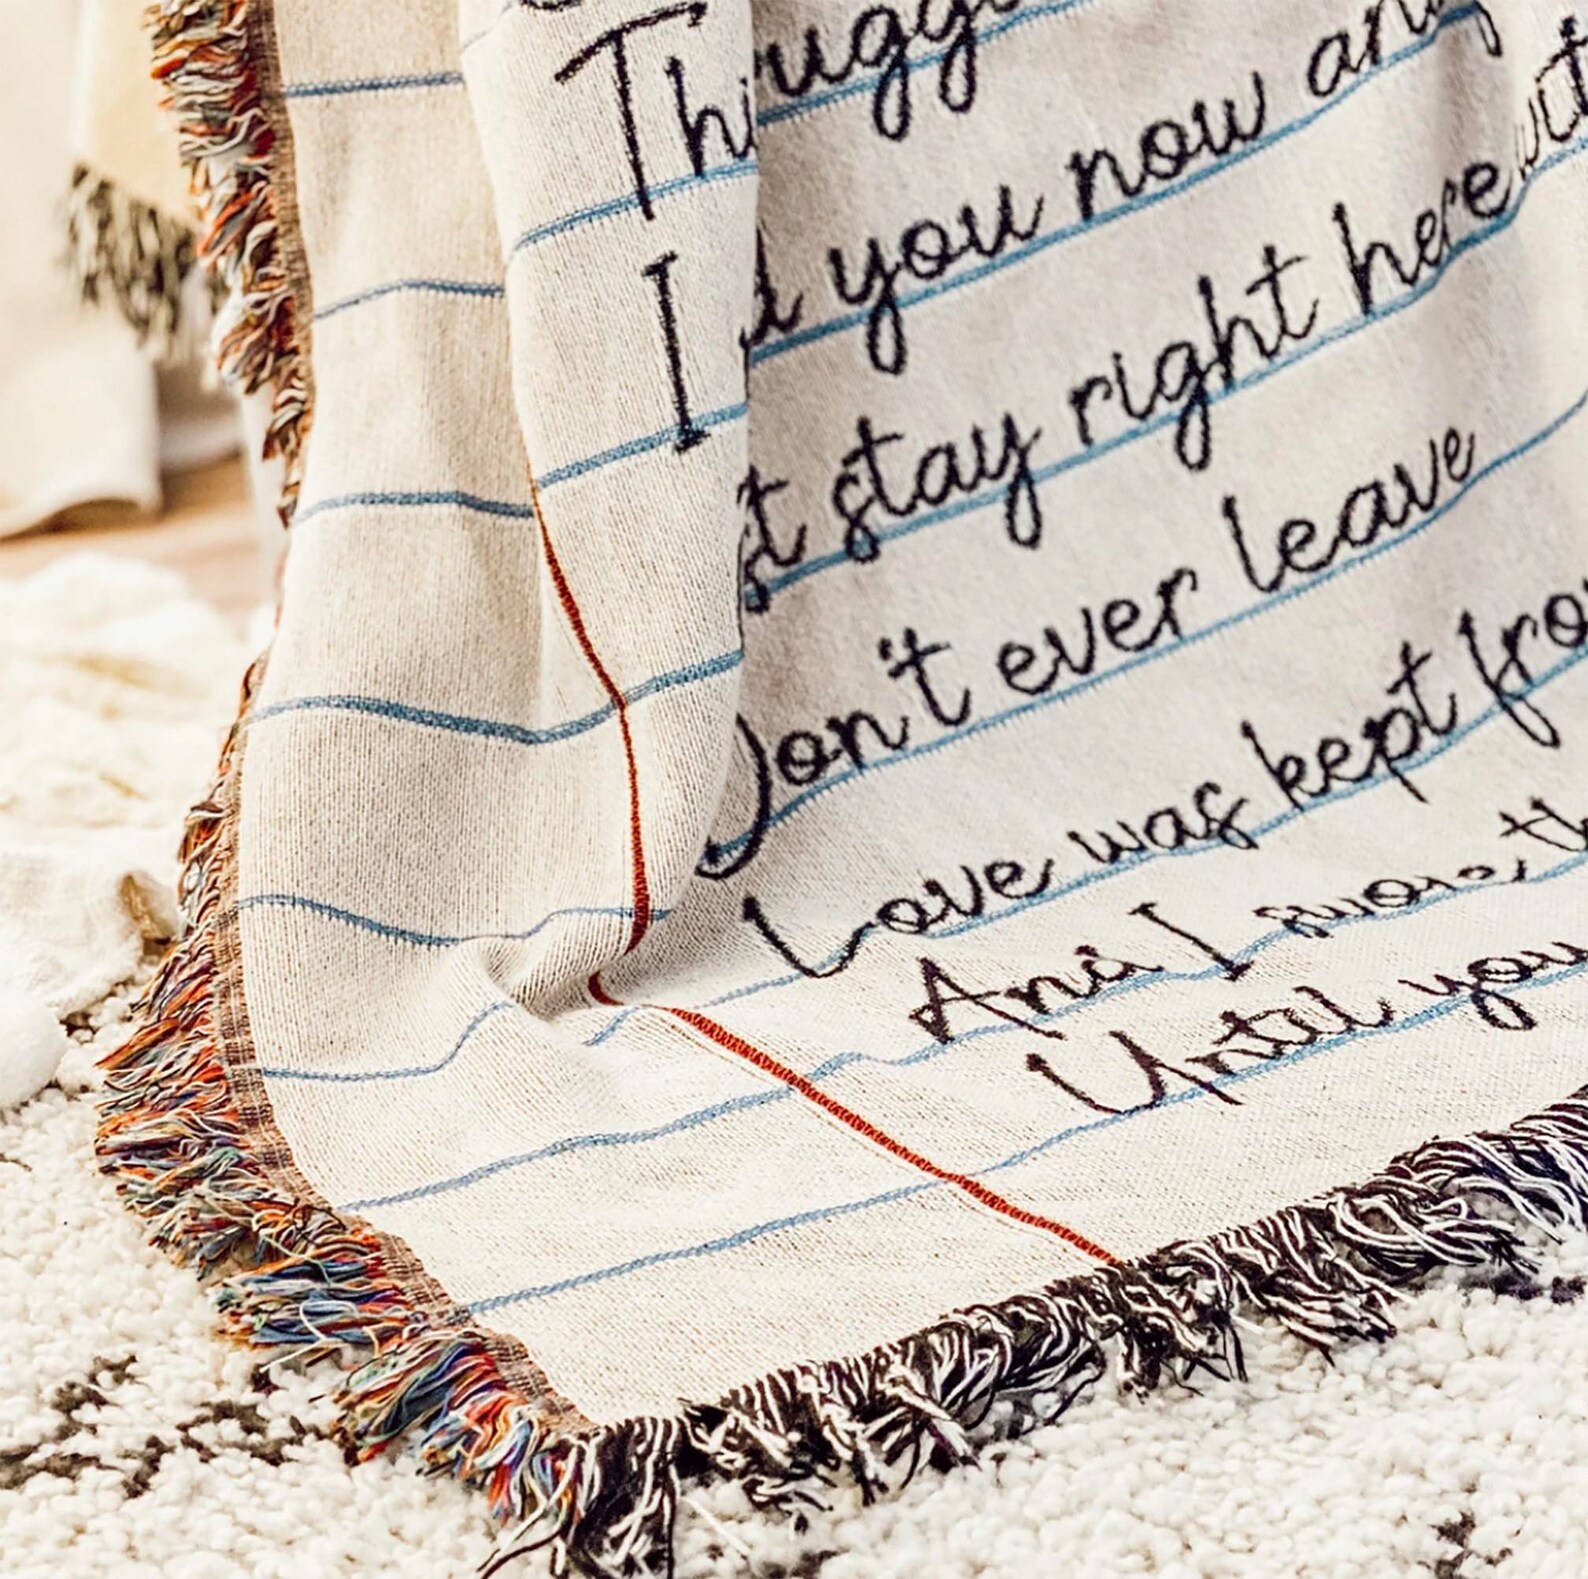 I you now and
stay right here
Don't ever leave
Love was kept
And I swore
Until you